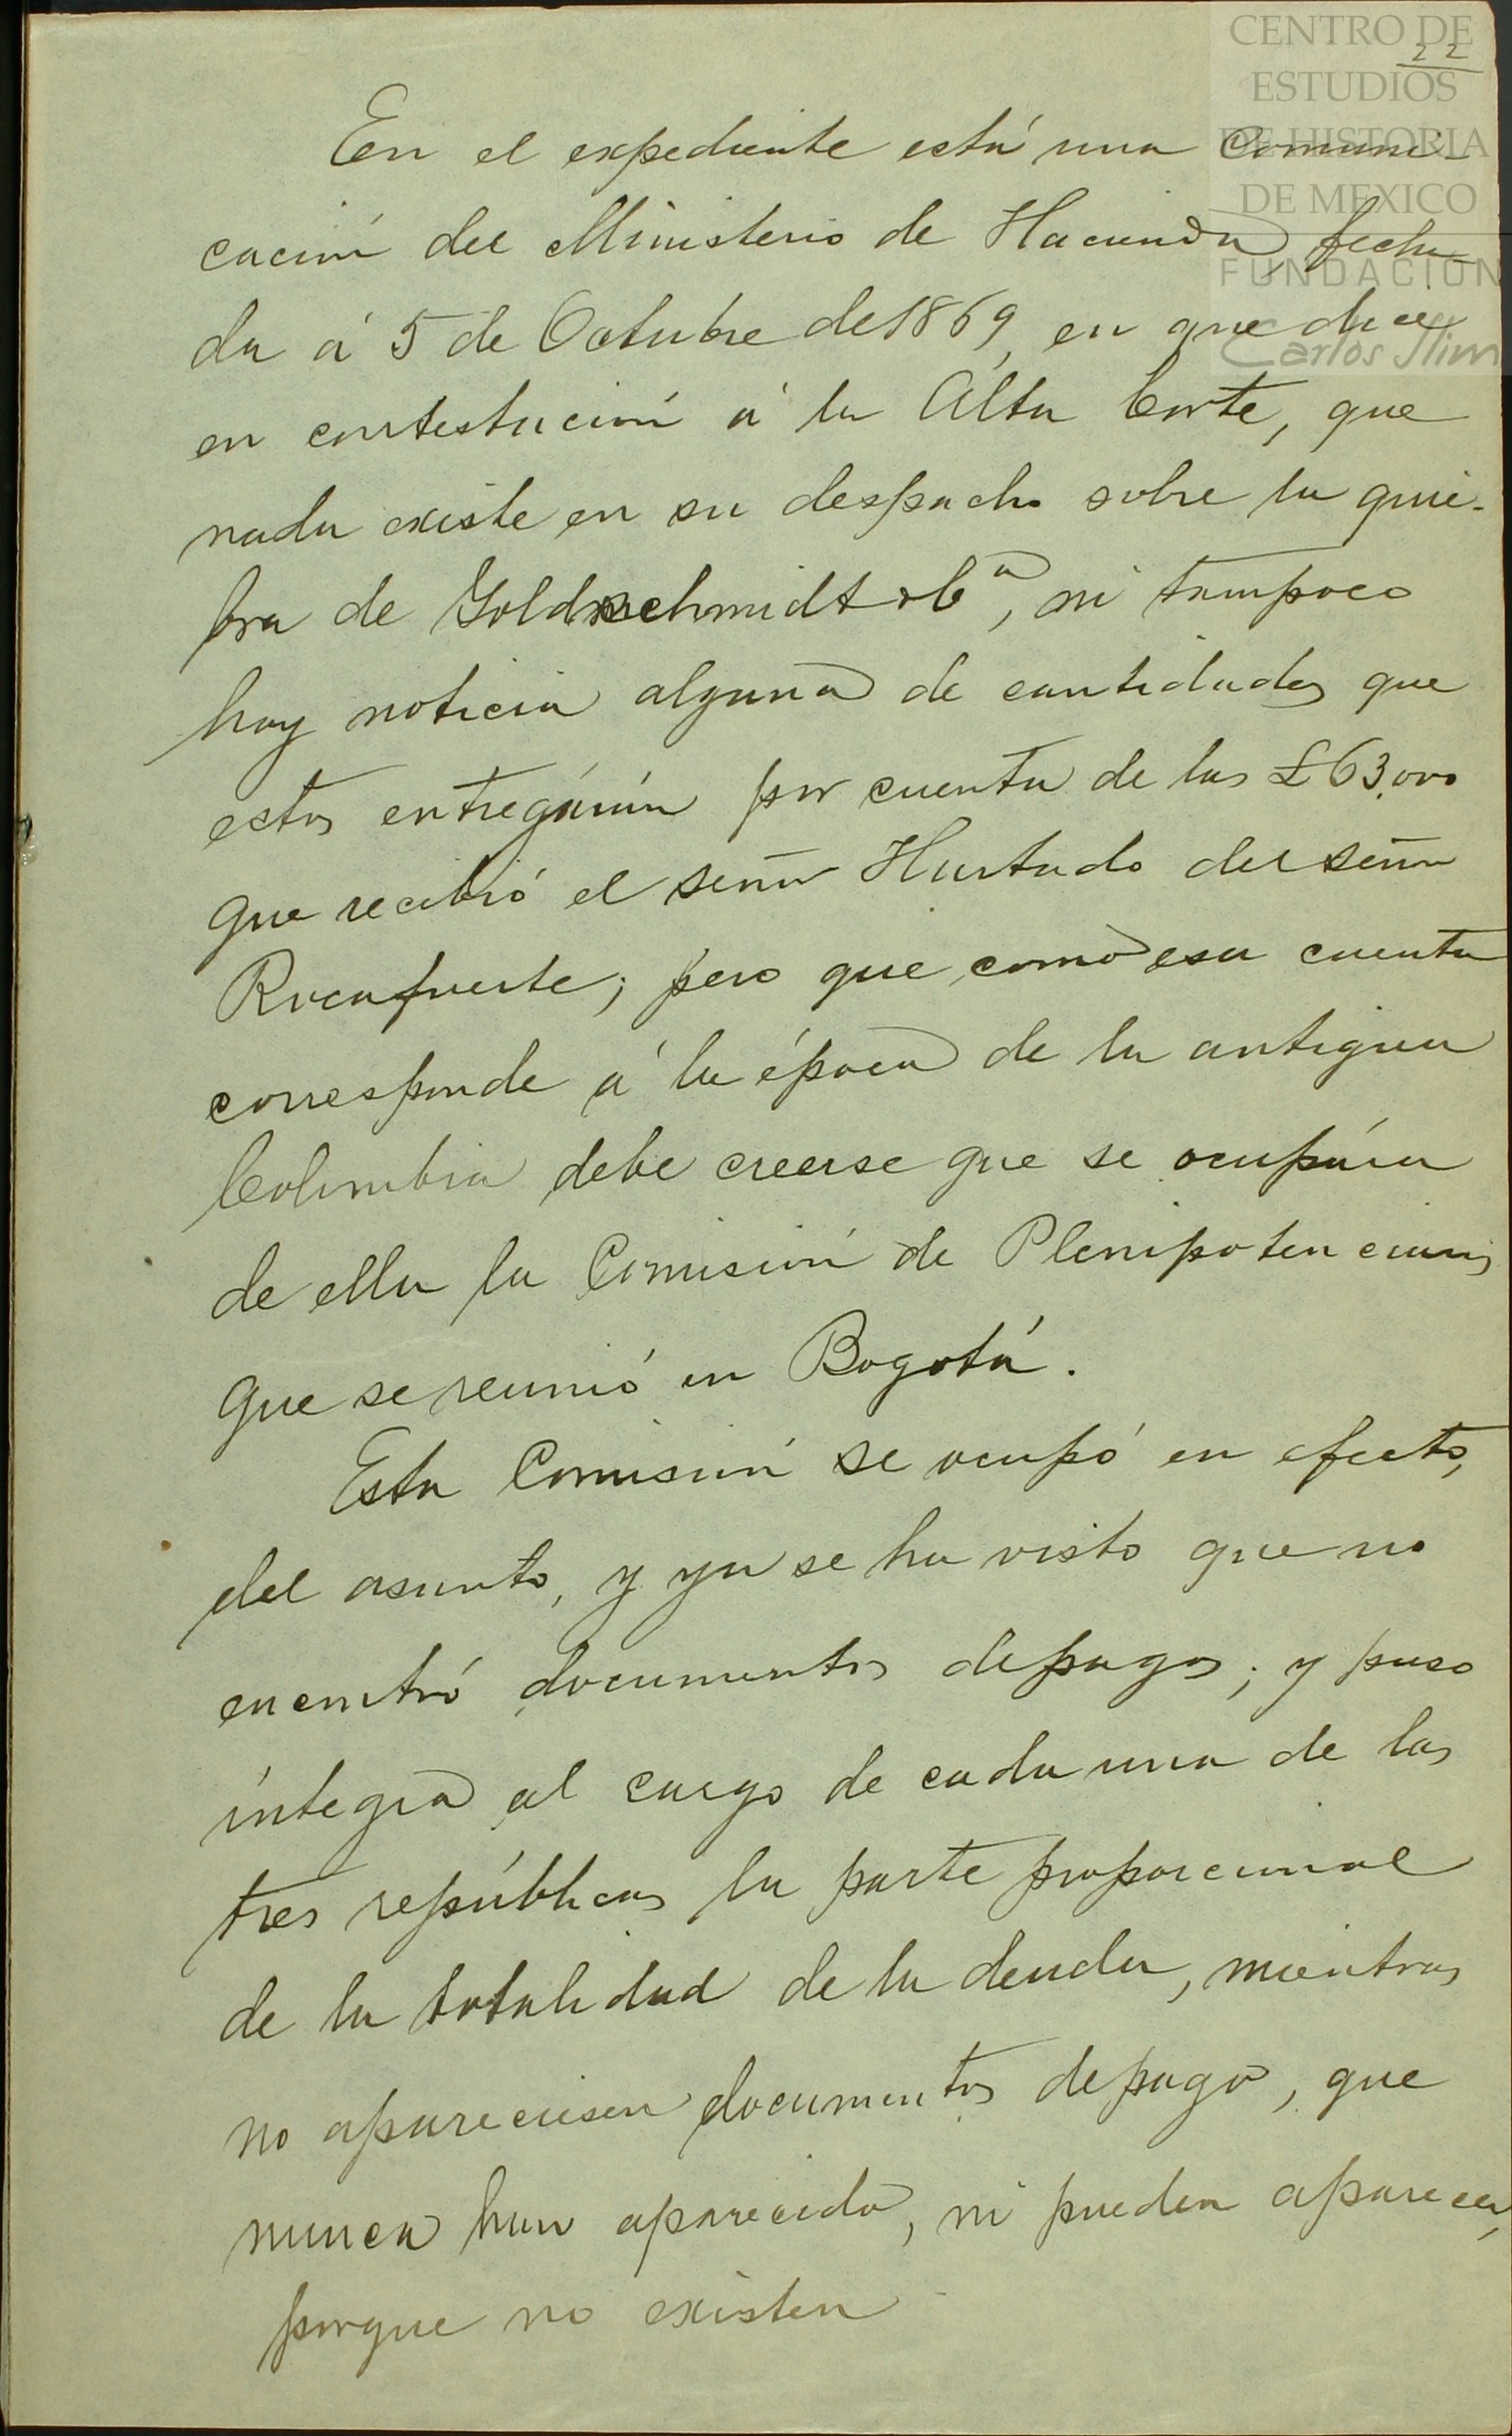 CENTRO DE
ESTUDIOS
DE HISTORIA
DE MEXICO
FUNDACIÓN
Carlos Slim
22
En el expediente está una Comuni-
cación del Ministerio de Hacienda, fecha-
da á 5 de Octubre de 1869, en que dice
en contestación á la Alta Corte, que
nada existe en su despacho sobre la quie-
bra de Goldschmidt & Cª, ni tampoco
hay noticia alguna de cantidades que
estos entregárán por cuenta de las £63,000
que recibió el señor Hurtado del señor
Rocafuerte; pero que como esa cuenta
corresponde á la época de la antigua
Colombia debe creerse que se ocupára
de ella la Comisión de Plenipotenciarios
que se reunió en Bogotá.
Esta Comisión se ocupó en efecto,
del asunto, y ya se ha visto que no
encontró documentos de pagos; y puso
íntegra al cargo de cada una de las
tres repúblicas la parte proporcional
de la totalidad de la deuda, mientras
no apareciesen documentos de pago, que
nunca han aparecido, ni pueden aparecer,
porque no existen